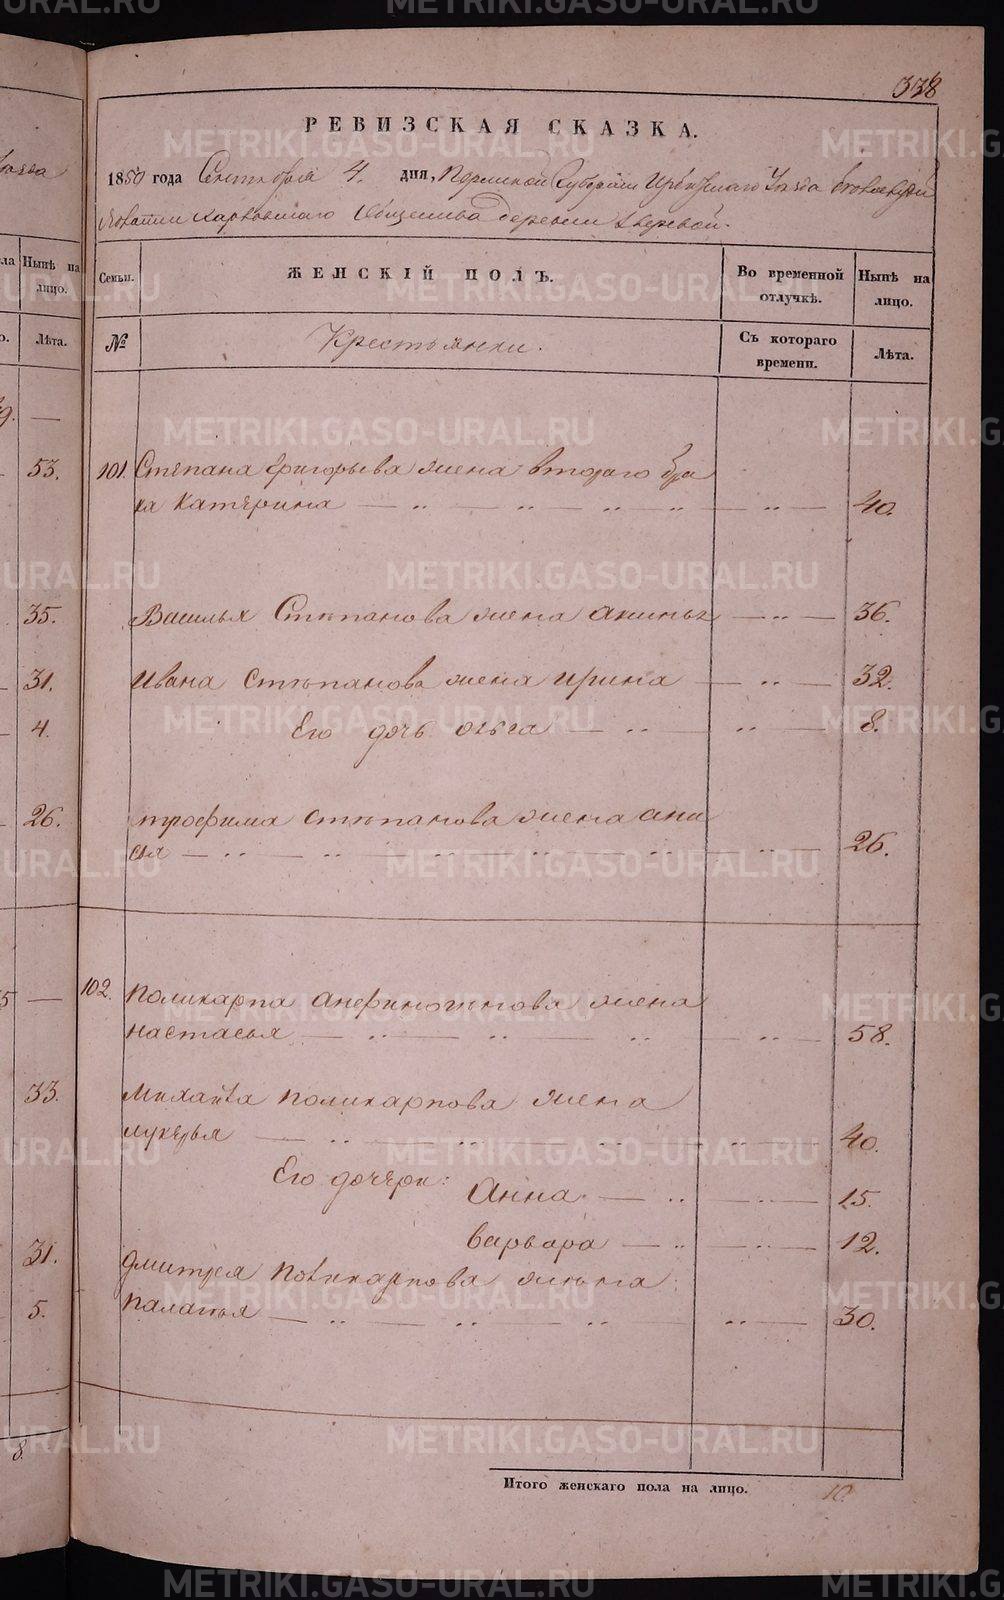 338
РЕВИЗСКАЯ СКАЗКА.
1850 года Сентября 4. дня, Пермской Губернии Ирбитскаго Уезда
Волости Харловскаго Общества деревни Зверевой.
Семьи. ЖЕНСКІЙ ПОЛЪ. Во временной отлучкѣ. Нынѣ на лицо.
№ Крестьянки. Съ котораго времени. Лѣта.
101. Степана Григорьева жена втораго бра
ка Катерина — „ — „ — „ — „ — 40.
Василья Степанова жена Акинья — „ — 36.
Ивана Степанова жена Ирина — „ — 32.
Его дочь Ольга — „ — „ — 8.
Трофима Степанова жена Ани
сья — „ — „ — „ — „ — 26.
102. Поликарпа жена
Настасья — „ — „ — „ — „ — 58.
Михайла Поликарпова жена
Лукерья — „ — „ — „ — „ — 40.
Его дочери: Анна — „ — „ — 15.
Варвара — „ — „ — 12.
Дмитрея Поликарпова жена
Палагья — „ — „ — „ — „ — 30.
Итого женскаго пола на лицо. 10.
Нынѣ на лицо.
Лѣта.
53.
35.
31.
4.
26.
33.
31.
5.
8.
METRIKI.GASO-URAL.RU